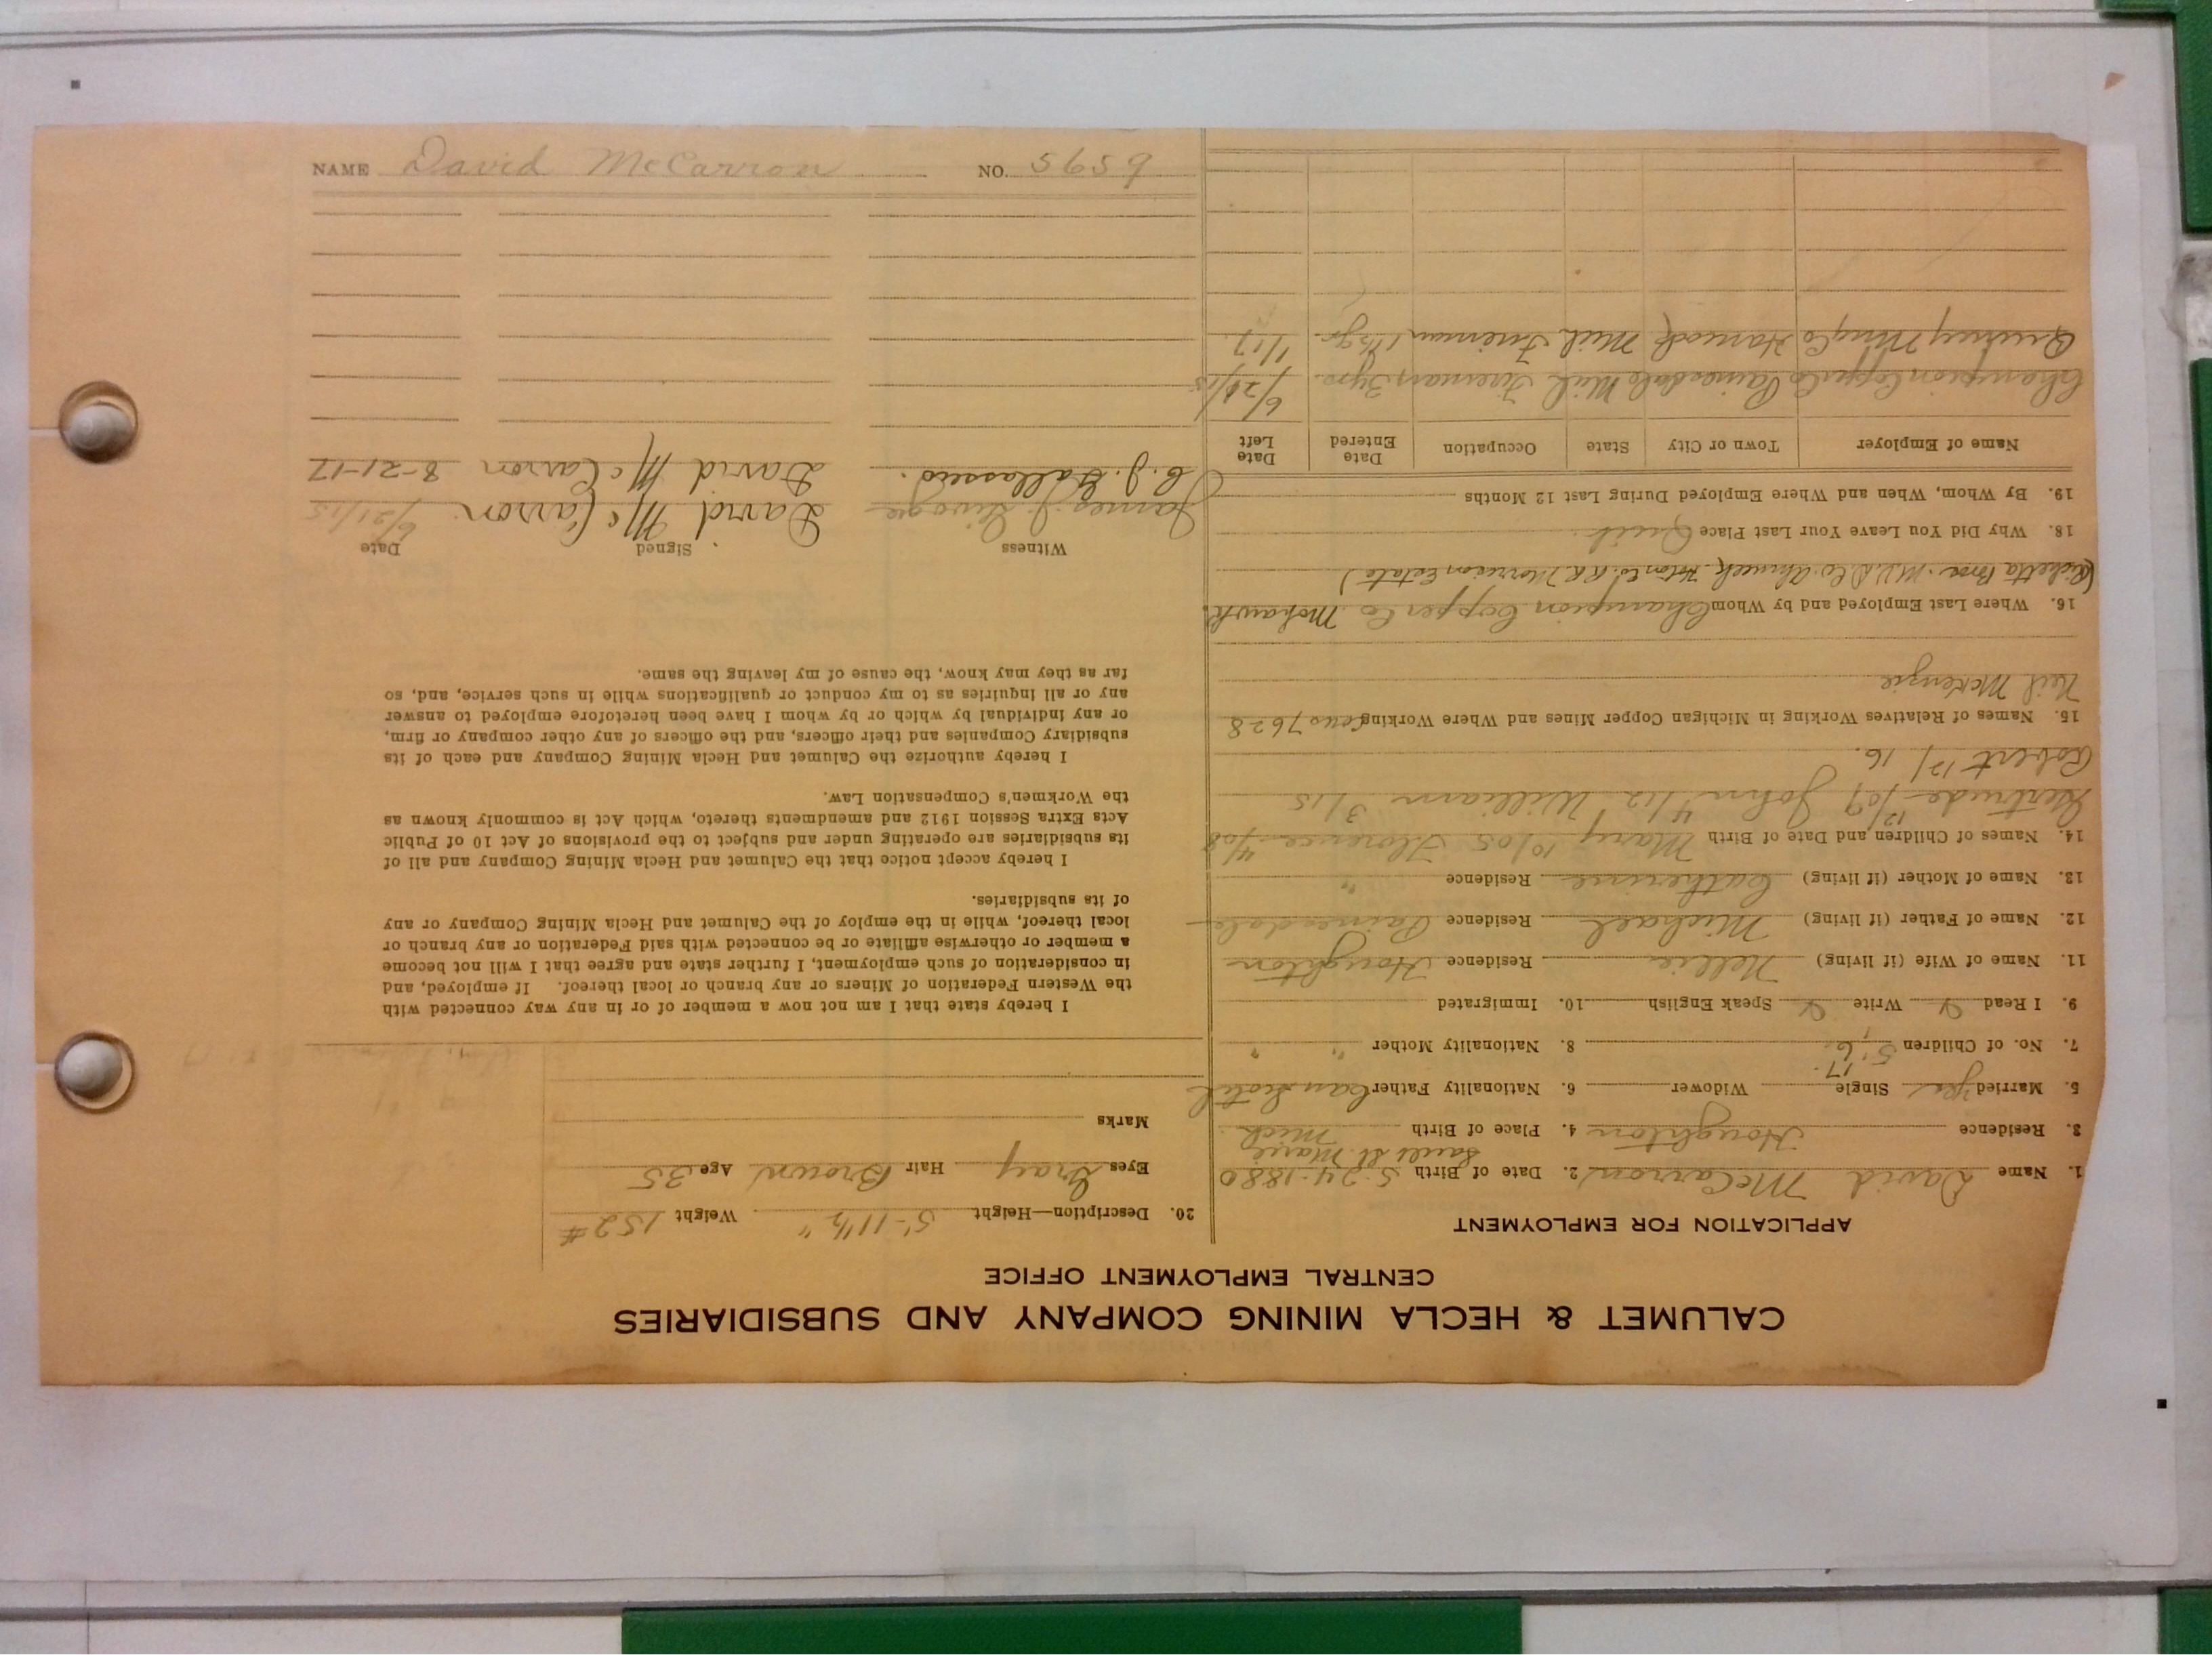 CALUMET & HECLA MINING COMPANY AND SUBSIDIARIES
CENTRAL EMPLOYMENT OFFICE
APPLICATION FOR EMPLOYMENT
1. Name David McCarron 2. Date of Birth 5-24-1880
3. Residence Houghton 4. Place of Birth Sault St. Marie Mich
5. Married yes Single Widower 6. Nationality Father Can Scotch
17.
7. No. of Children 5, 6. 8. Nationality Mother " "
9. I Read Write Speak English 10. Immigrated
11. Name of Wife (if living) Nellie Residence Houghton
12. Name of Father (if living) Michael Residence Painesdale
13. Name of Mother (if living) Catherine Residence "
14. Names of Children and Date of Birth Mary 10/05 Florence 4/08
Gertrude 12/09 John 4/12 William 3/15
Robert 12/16.
15. Names of Relatives Working in Michigan Copper Mines and Where Working 7628
Neil McKenzie
16. Where Last Employed and by Whom Champion Copper Co Mohawk
(Ricketts Bros. Ahmeek. R.R. Morrison Estate)
18. Why Did You Leave Your Last Place Quit.
19. By Whom, When and Where Employed During Last 12 Months
Name of Employer Town or City State Occupation Date Entered Date Left
Champion Copper Co Painesdale Mich Fireman 3 yrs. 6/20/15
Quincy Mng Co Hancock Mich Fireman 1 1/2 yr. 1/17
20. Description—Height 5'-11 1/2" Weight 152#
Eyes Gray Hair Brown Age 35
Marks
I hereby state that I am not now a member of or in any way connected with
the Western Federation of Miners or any branch or local thereof. If employed, and
in consideration of such employment, I further state and agree that I will not become
a member or otherwise affiliate or be connected with said Federation or any branch or
local thereof, while in the employ of the Calumet and Hecla Mining Company or any
of its subsidiaries.
I hereby accept notice that the Calumet and Hecla Mining Company and all of
its subsidiaries are operating under and subject to the provisions of Act 10 of Public
Acts Extra Session 1912 and amendments thereto, which Act is commonly known as
the Workmen's Compensation Law.
I hereby authorize the Calumet and Hecla Mining Company and each of its
subsidiary Companies and their officers, and the officers of any other company or firm,
or any individual by which or by whom I have been heretofore employed to answer
any or all inquiries as to my conduct or qualifications while in such service, and, so
far as they may know, the cause of my leaving the same.
Witness Signed Date
James J. David McCarron 6/21/15
C. J. David McCarron 8-21-17
NAME David McCarron NO. 5659